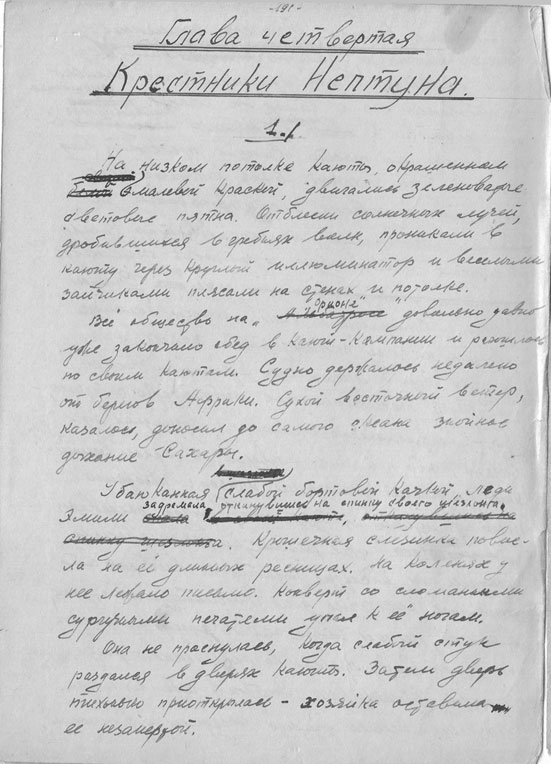 -191-
Глава четвертая
Крестники Нептуна.
1.
На низком потолке каюты, окрашенном
эмалевой краской, двигались зеленоватые
световые пятна. Отблески солнечных лучей,
дробившихся в гребнях волн, проникали в
каюту через круглый иллюминатор и веселыми
зайчиками плясали на стенах и потолке.
Всё общество на „Орионе" довольно давно
уже закончило обед в кают-компании и разошлось
по своим каютам. Судно держалось недалеко
от берегов Африки. Сухой восточный ветер,
казалось, доносил до самого океана знойное
дыхание Сахары.
Убаюканная слабой бортовой качкой, леди
Эмили задремала, откинувшись на спинку своего шезлонга.
Крошечная слезинка повис-
ла на её длинных ресницах. На коленях у
нее лежало письмо. Конверт со сломанными
сургучными печатями упал к её ногам.
Она не проснулась, когда слабый стук
раздался в дверях каюты. Затем дверь
тихонько приоткрылась - хозяйка оставила
ее незапертой.